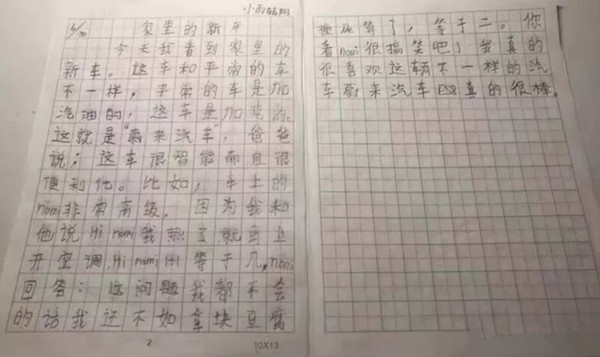 小雨 航阳
5/30 家里的新车
今天我看到家里的
新车。这车和平常的车
不一样，平常的车是加
汽油的，这车是加电的。
这就是"蔚来汽车"，爸爸
说：这车很智能而且很
便利他。比如，车上的
nomi非常高级，因为我和
他说Hi nomi我热了就马上
开空调，Hi nomi 1+1等于几，nomi
回答：这问题我都不会
的话我还不如拿块豆腐
撞死算了，等于二。你
看nomi很搞笑吧！我真的
很喜观这辆不一样的汽
车蔚来汽车ES8真的很棒。
2
10X13